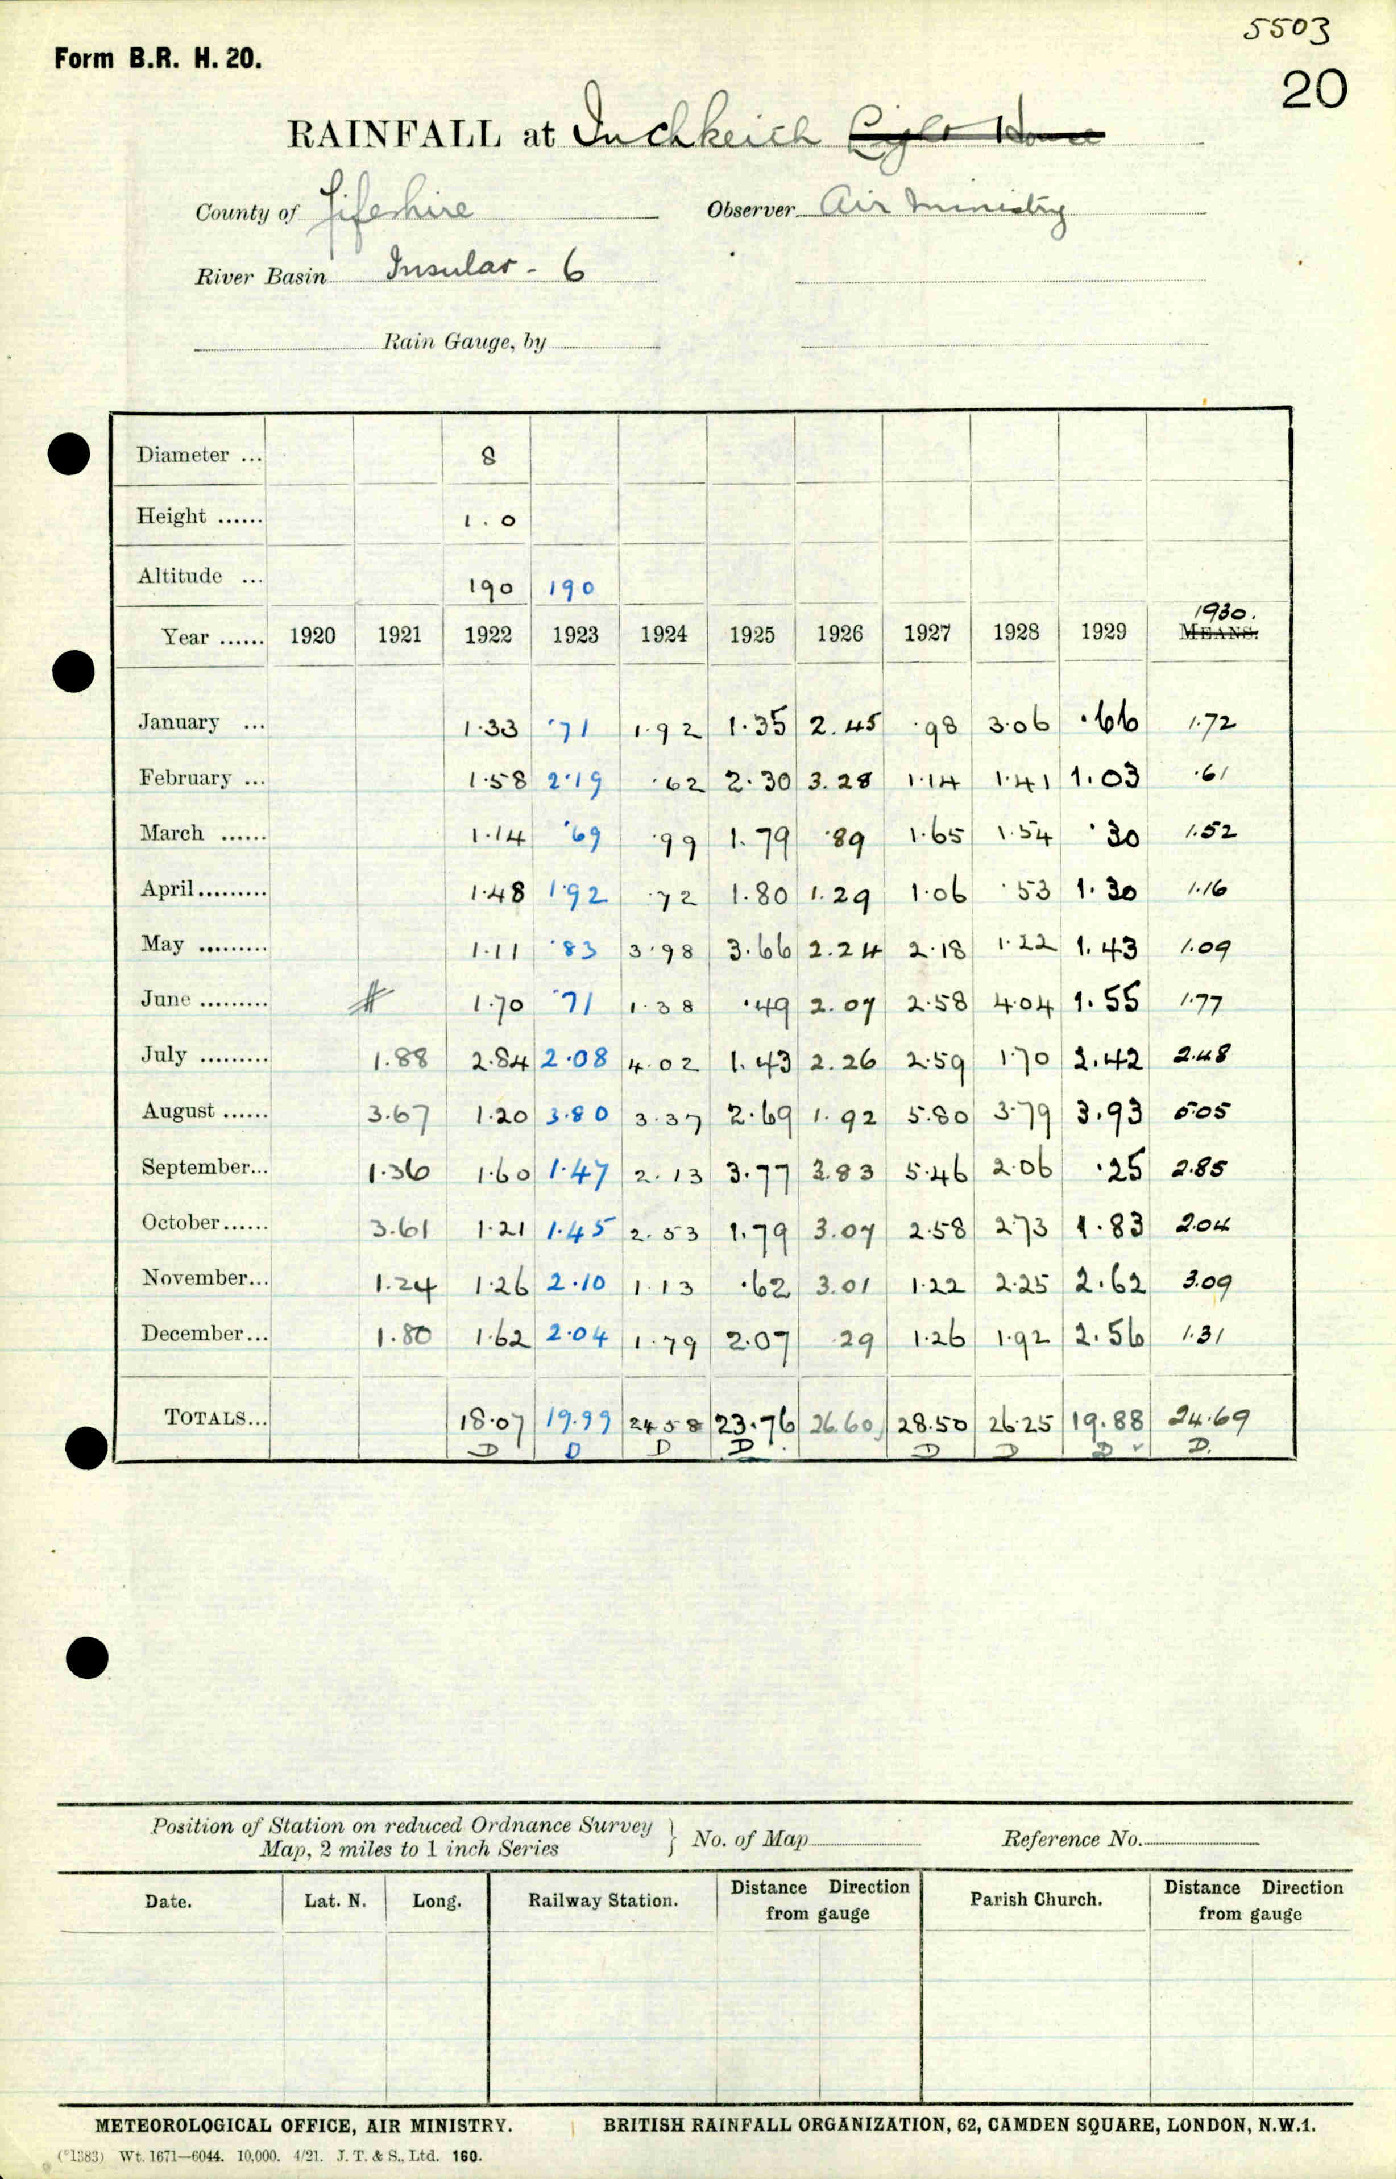 5503
Form B.R. H. 20.
20
RAINFALL at Inchkeith Light House
County of Fifeshire Observer Air Ministry
River Basin Insular - 6
Rain Gauge, by
Diameter ... 8
Height ...... 1.0
Altitude ... 190 190
1930.
Year ...... 1920 1921 1922 1923 1924 1925 1926 1927 1928 1929 MEANS.
January ... 1.33 .71 1.92 1.35 2.45 .98 3.06 .66 1.72
February ... 1.58 2.19 .62 2.30 3.28 1.14 1.41 1.03 .61
March ...... 1.14 .69 .99 1.79 .89 1.65 1.54 .30 1.52
April ......... 1.48 1.92 .72 1.80 1.29 1.06 .53 1.30 1.16
May ......... 1.11 .83 3.98 3.66 2.24 2.18 1.22 1.43 1.09
June ......... # 1.70 .71 1.38 .49 2.07 2.58 4.04 1.55 1.77
July ......... 1.88 2.84 2.08 4.02 1.43 2.26 2.59 1.70 2.42 2.48
August ...... 3.67 1.20 3.80 3.37 2.69 1.92 5.80 3.79 3.93 5.05
September... 1.36 1.60 1.47 2.13 3.77 3.83 5.46 2.06 .25 2.85
October...... 3.61 1.21 1.45 2.53 1.79 3.07 2.58 2.73 1.83 2.04
November... 1.24 1.26 2.10 1.13 .62 3.01 1.22 2.25 2.62 3.09
December... 1.80 1.62 2.04 1.79 2.07 .29 1.26 1.92 2.56 1.31
TOTALS... 18.07 19.99 24.58 23.76 26.60 28.50 26.25 19.88 24.69
D D D D. D D D ✓ D.
Position of Station on reduced Ordnance Survey
Map, 2 miles to 1 inch Series } No. of Map Reference No.
Date. Lat. N. Long. Railway Station. Distance Direction from gauge Parish Church. Distance Direction from gauge
METEOROLOGICAL OFFICE, AIR MINISTRY. BRITISH RAINFALL ORGANIZATION, 62, CAMDEN SQUARE, LONDON, N.W.1.
(*1383) Wt. 1671—6044. 10,000. 4/21. J. T. & S., Ltd. 160.